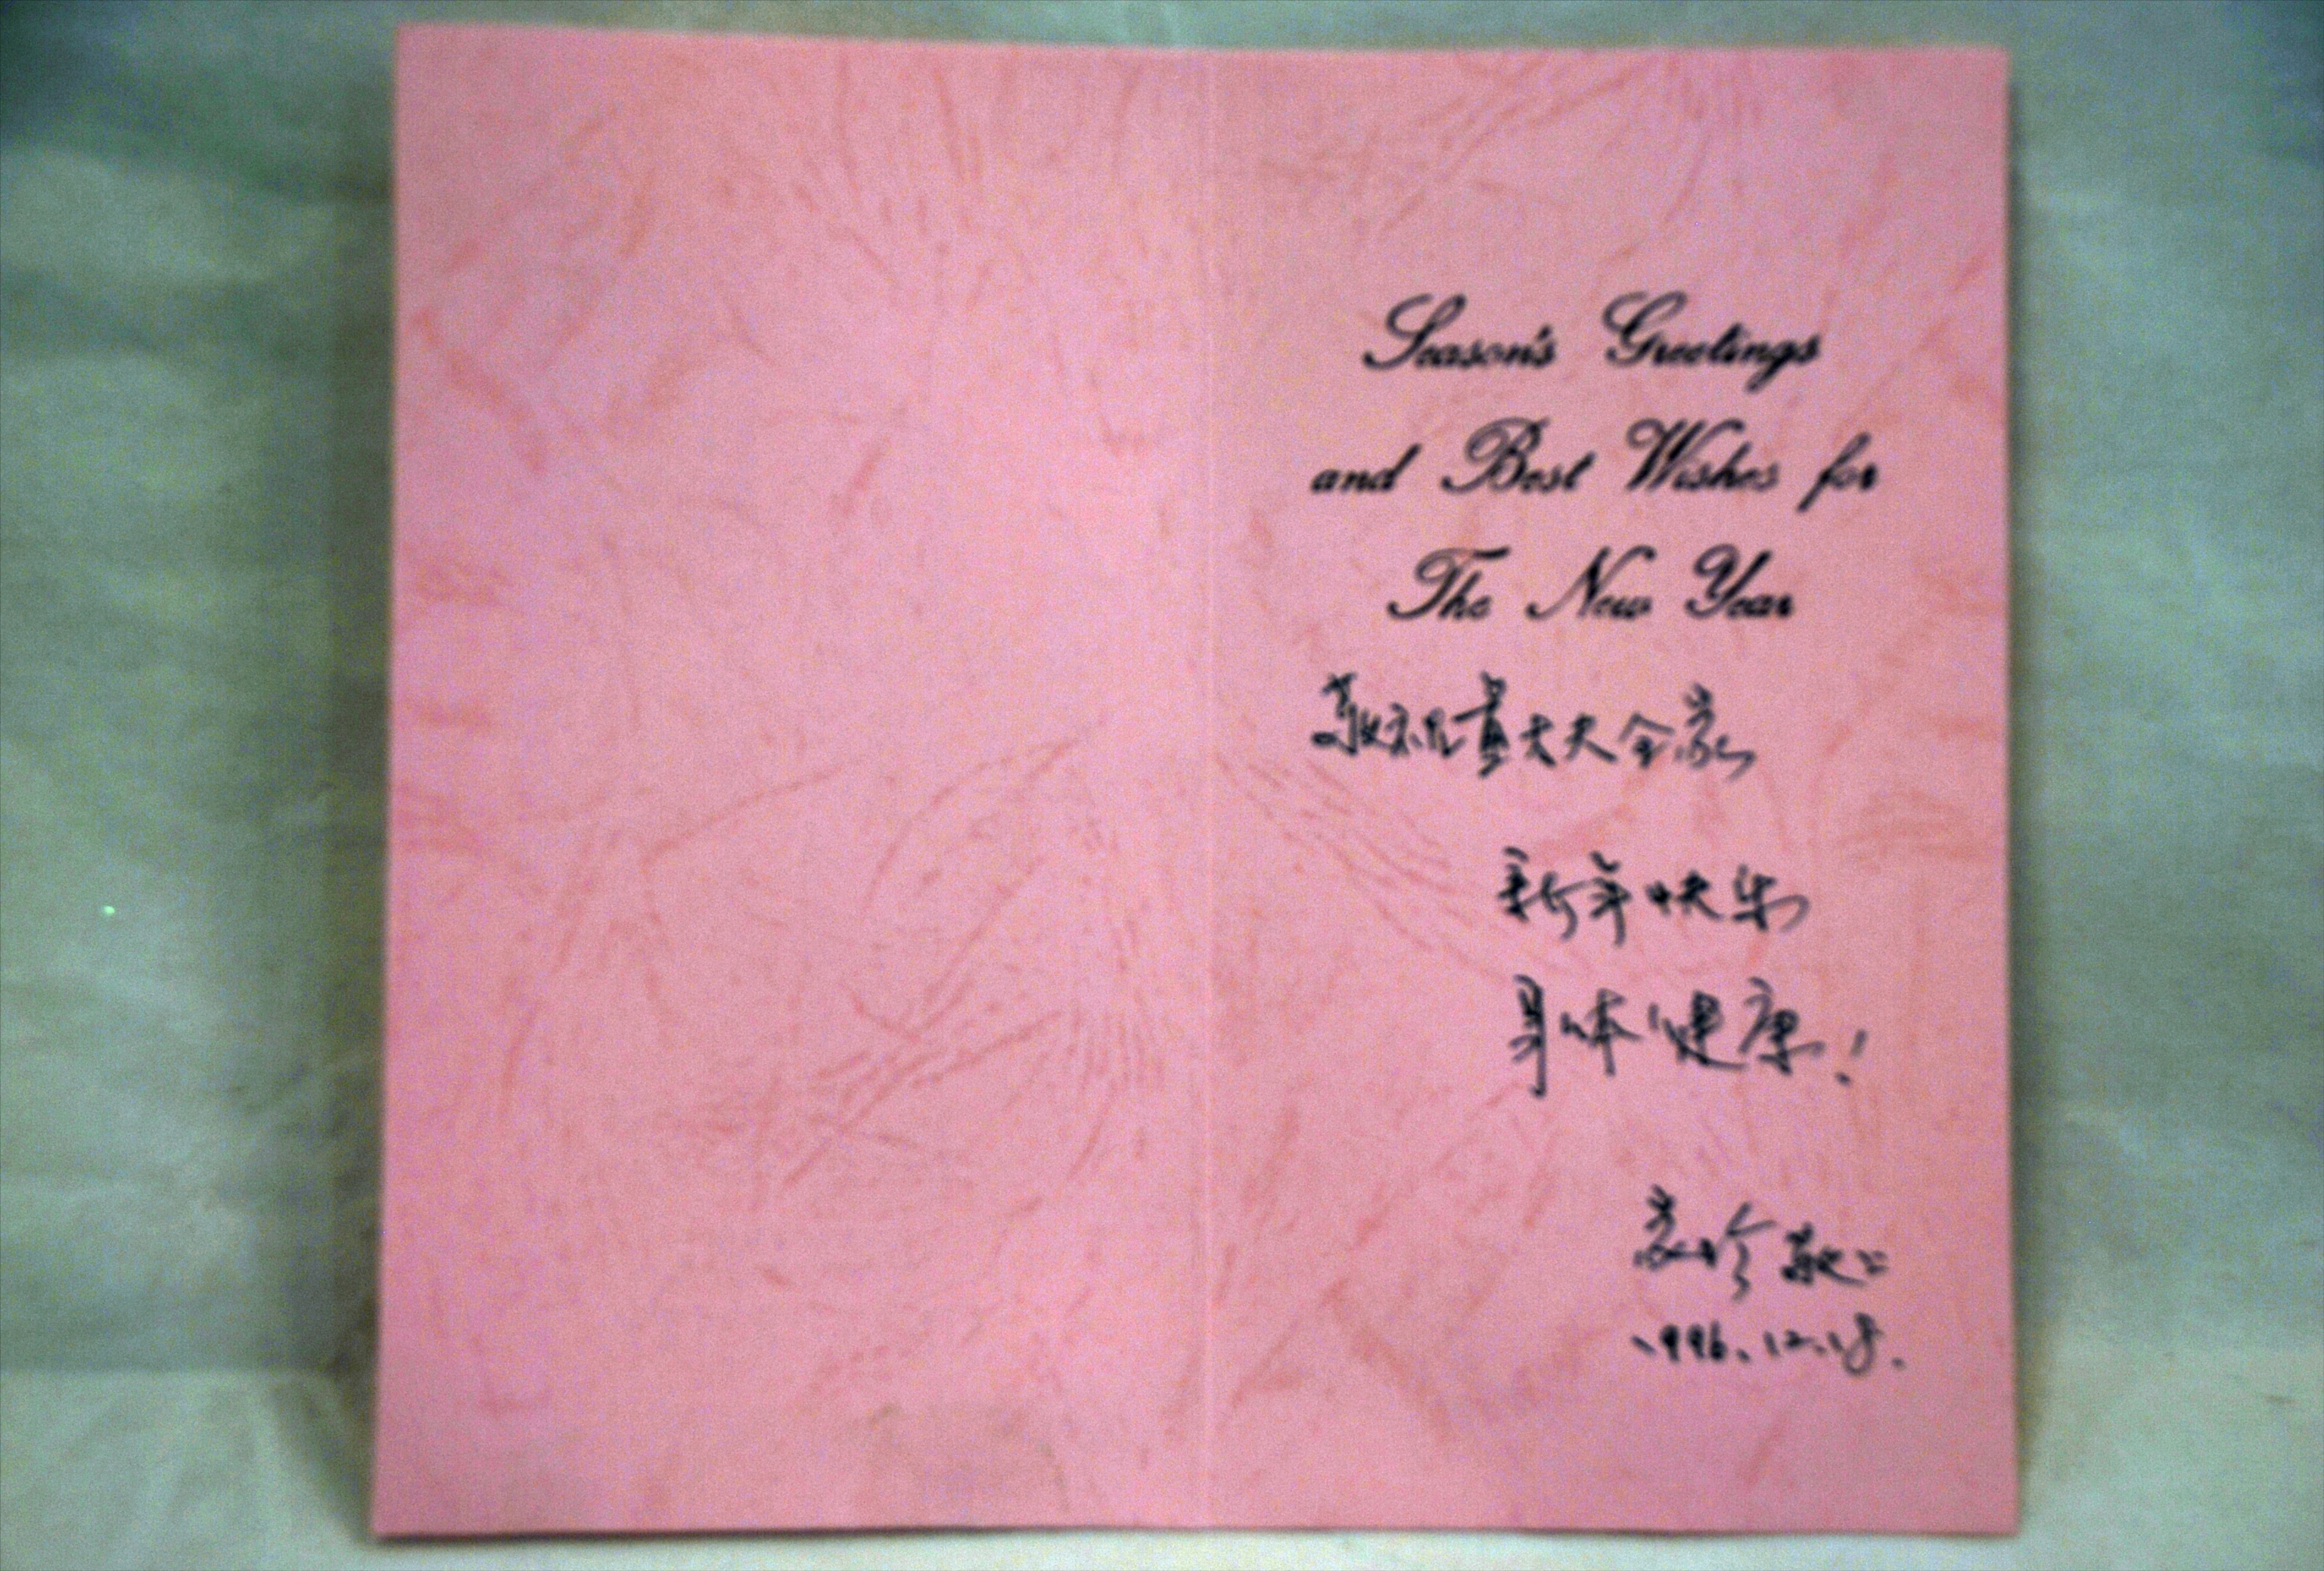 Season's Greetings
and Best Wishes for
The New Year
敬祝黄大夫全家
新年快乐
身体健康!
敬上
1996.12.18.